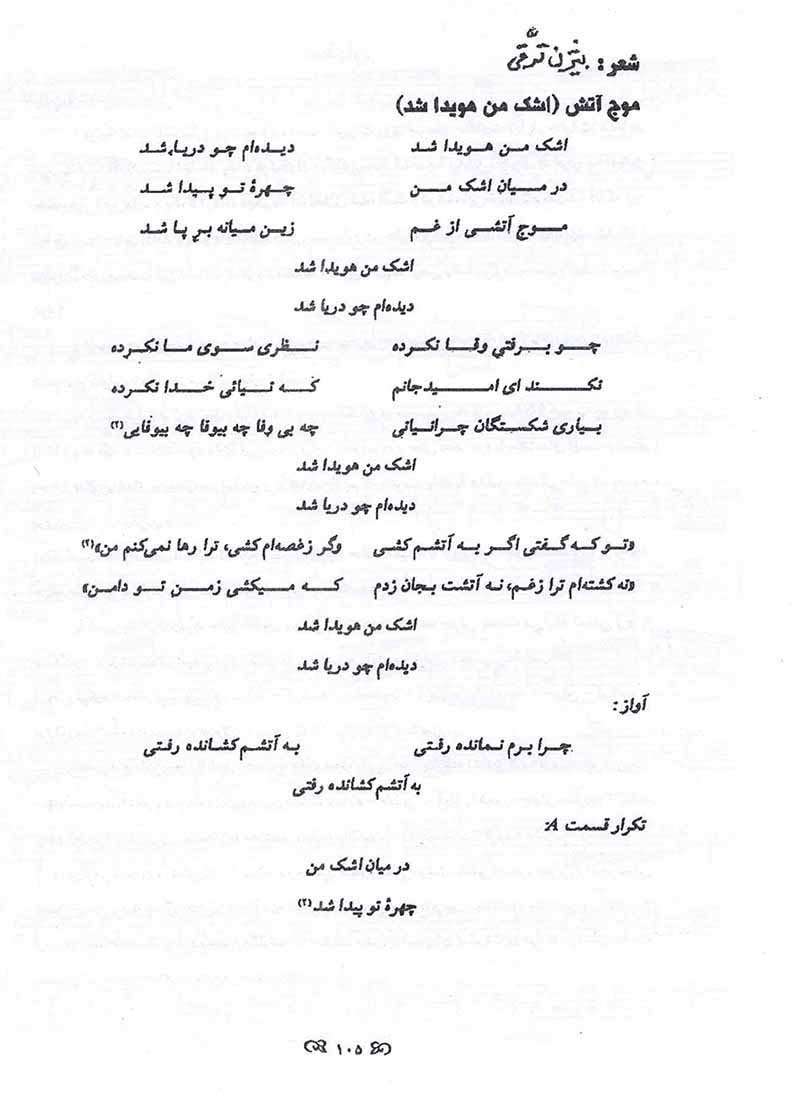 شعر : بیژن ترقّی
موج آتش (اشک من هویدا شد)
اشک من هویدا شد دیده‌ام چو دریا شد
در میان اشک من چهرهٔ تو پیدا شد
موج آتشی از غم زین میانه بر پا شد
اشک من هویدا شد
دیده‌ام چو دریا شد
چو برفتی وفا نکرده نظری سوی ما نکرده
نکند ای امیدجانم که نیائی خدا نکرده
بیاری شکستگان چرانیائی چه بی وفا چه بیوفا چه بیوفایی(۲)
اشک من هویدا شد
دیده‌ام چو دریا شد
«تو که گفتی اگر به آتشم کشی وگر زغصه‌ام کشی، ترا رها نمی‌کنم من»(۲)
«نه کشته‌ام ترا زغم، نه آتشت بجان زدم که میکشی زمن تو دامن»
اشک من هویدا شد
دیده‌ام چو دریا شد
آواز:
چرا برم نمانده رفتی به آتشم کشانده رفتی
به آتشم کشانده رفتی
تکرار قسمت A:
در میان اشک من
چهرهٔ تو پیدا شد(۲)
۱۰۵